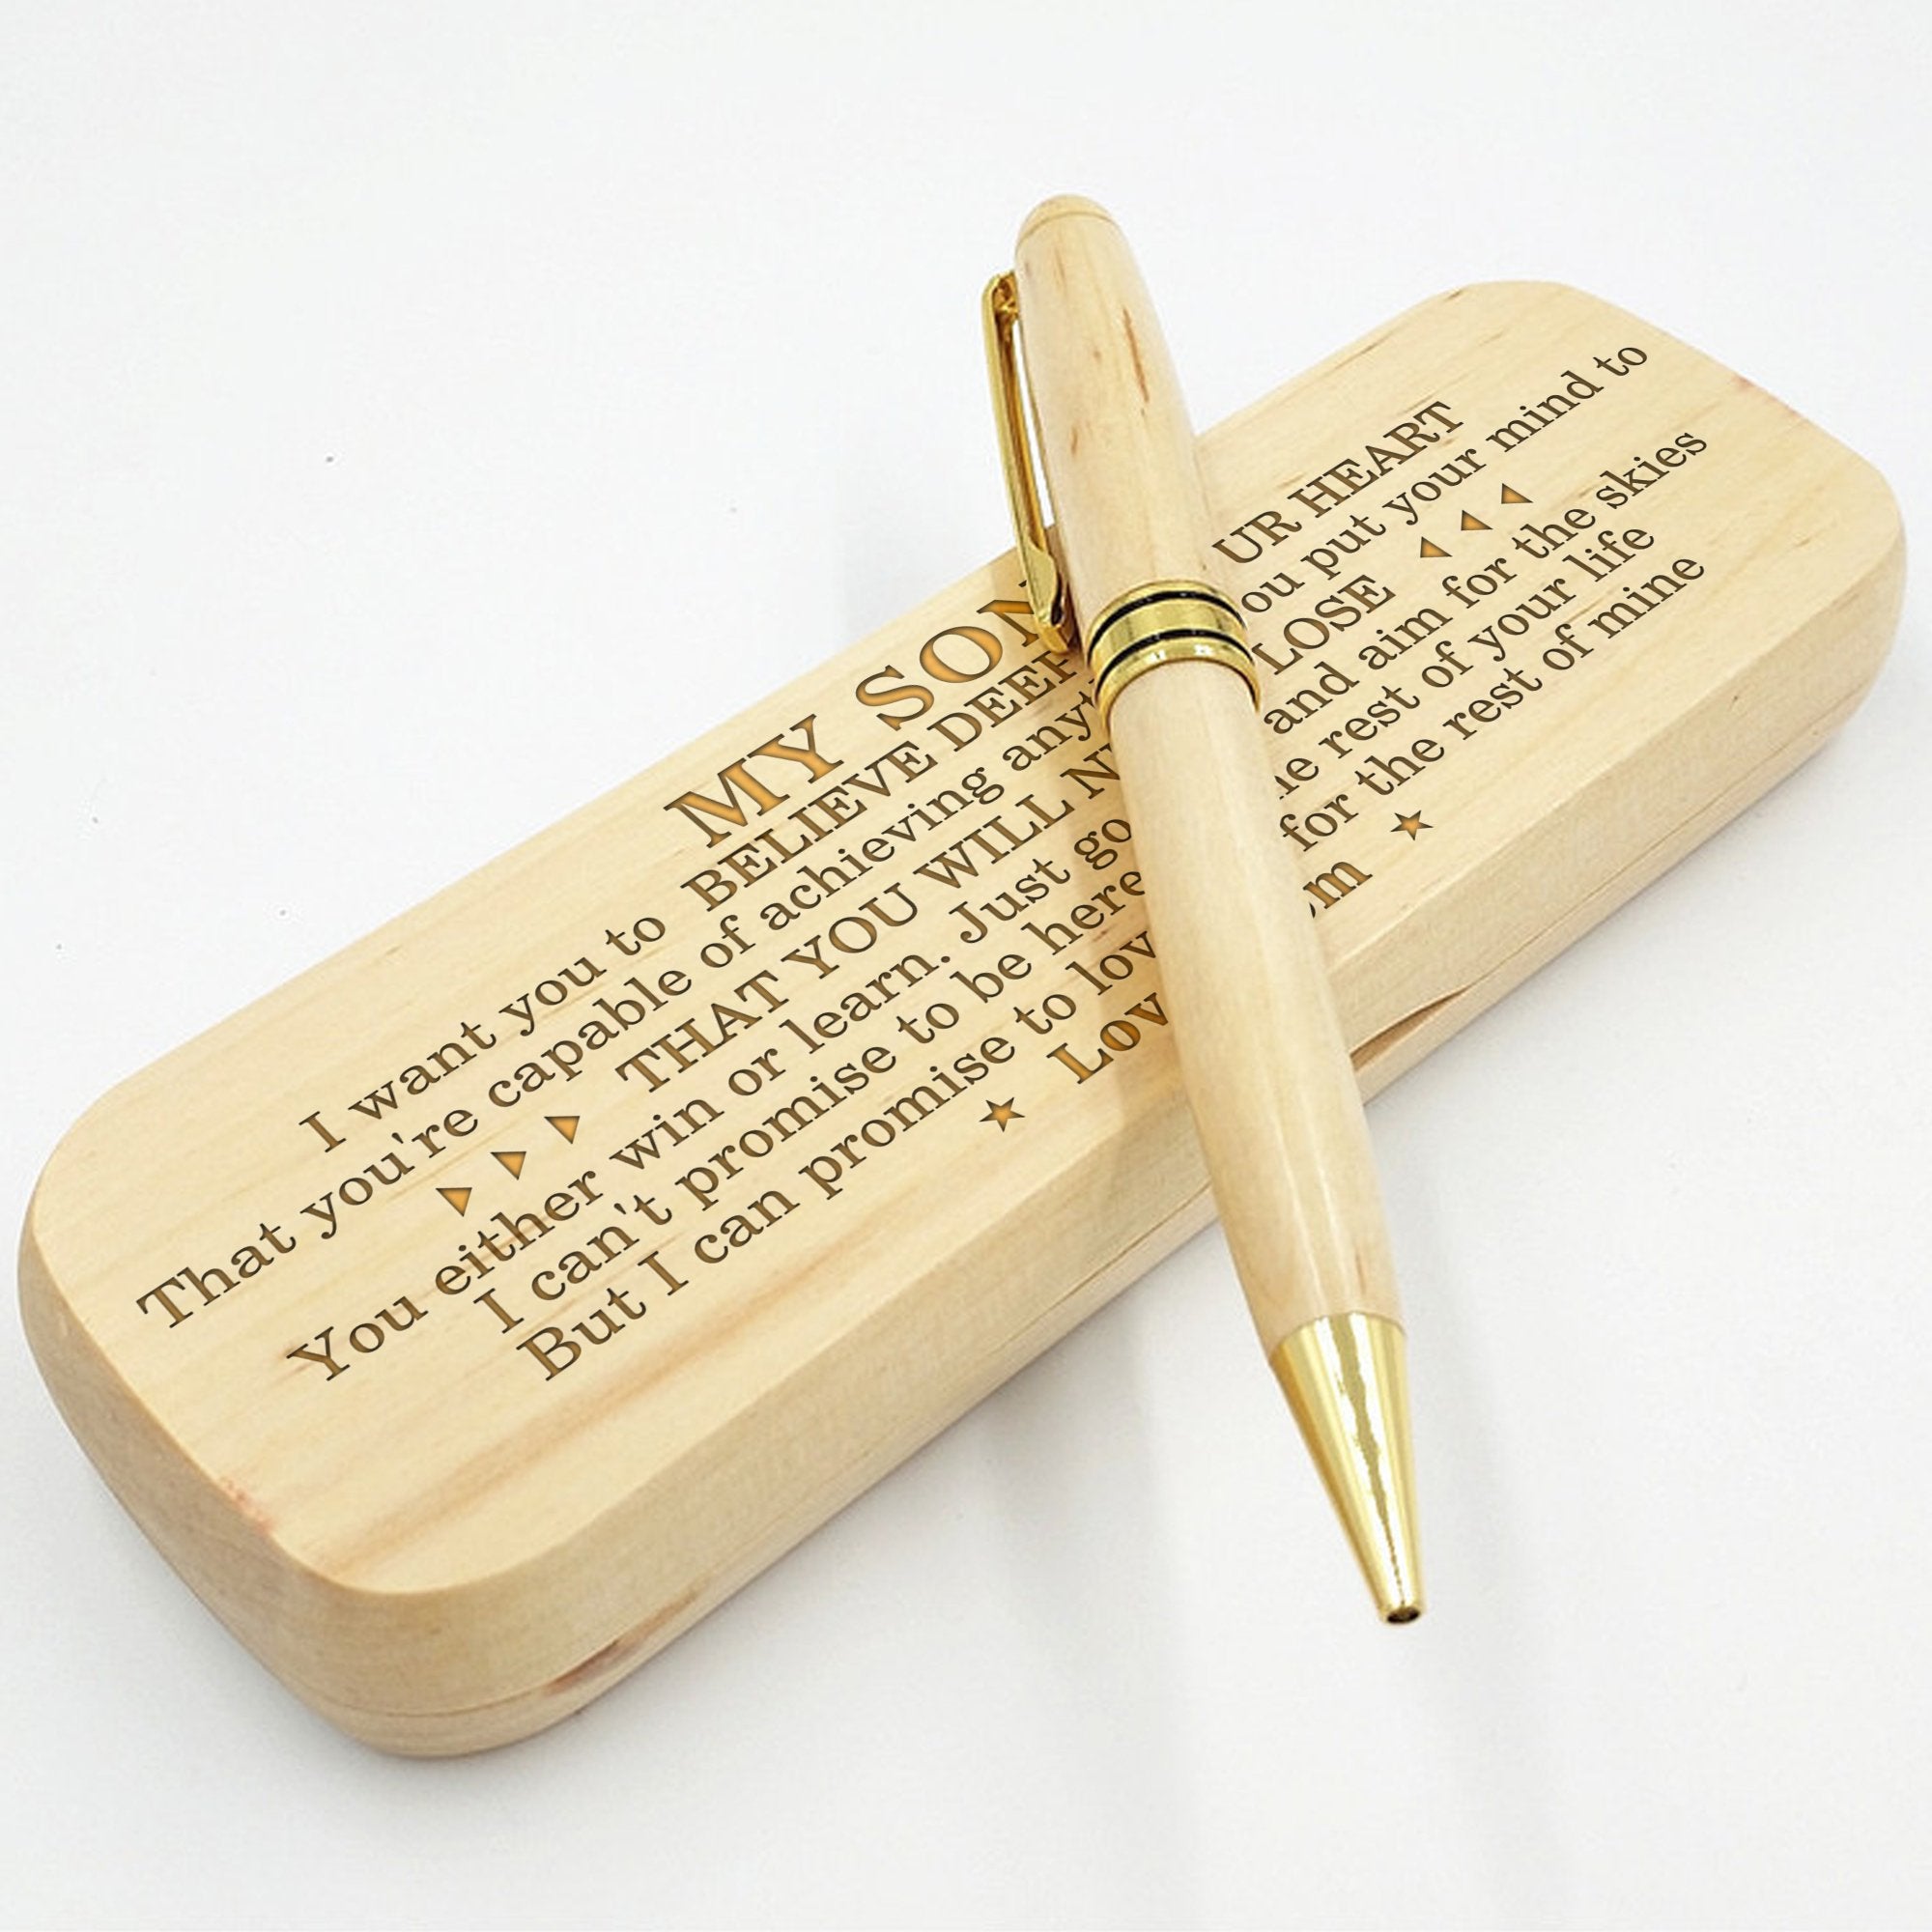 MY SON
I want you to BELIEVE DEEP UR HEART
That you're capable of achieving anyt ou put your mind to
THAT YOU WILL N LOSE
You either win or learn. Just go and aim for the skies
I can't promise to be here he rest of your life
But I can promise to lov for the rest of mine
Lov m